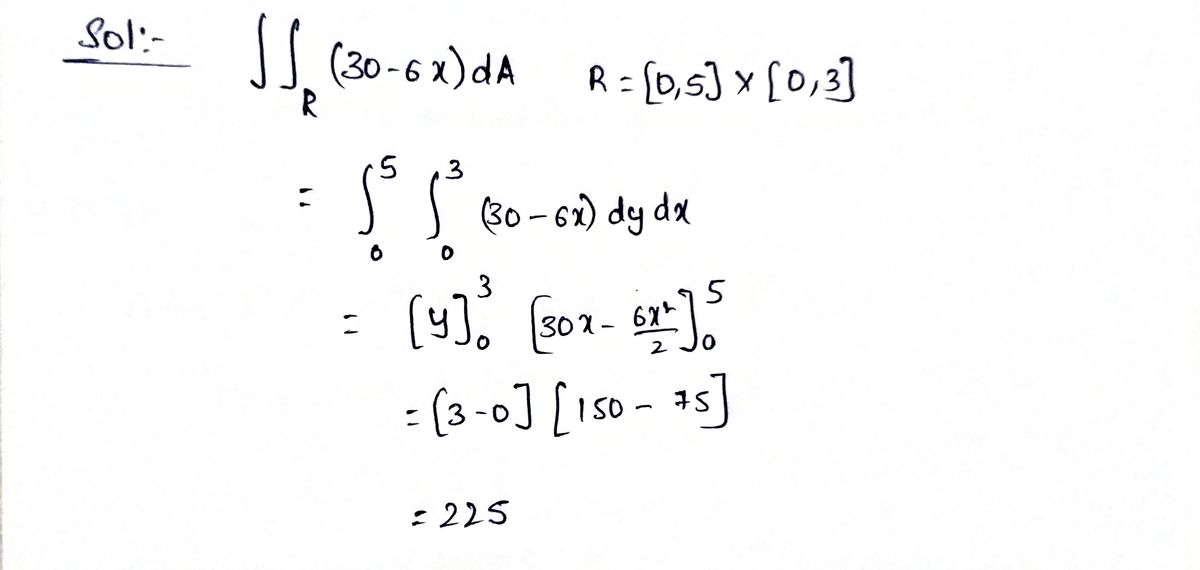 Sol:- ∬_R (30-6x)dA R = [0,5] × [0,3]
= ∫_0^5 ∫_0^3 (30-6x) dy dx
= [y]_0^3 [30x - 6x²/2]_0^5
= [3-0] [150 - 75]
= 225